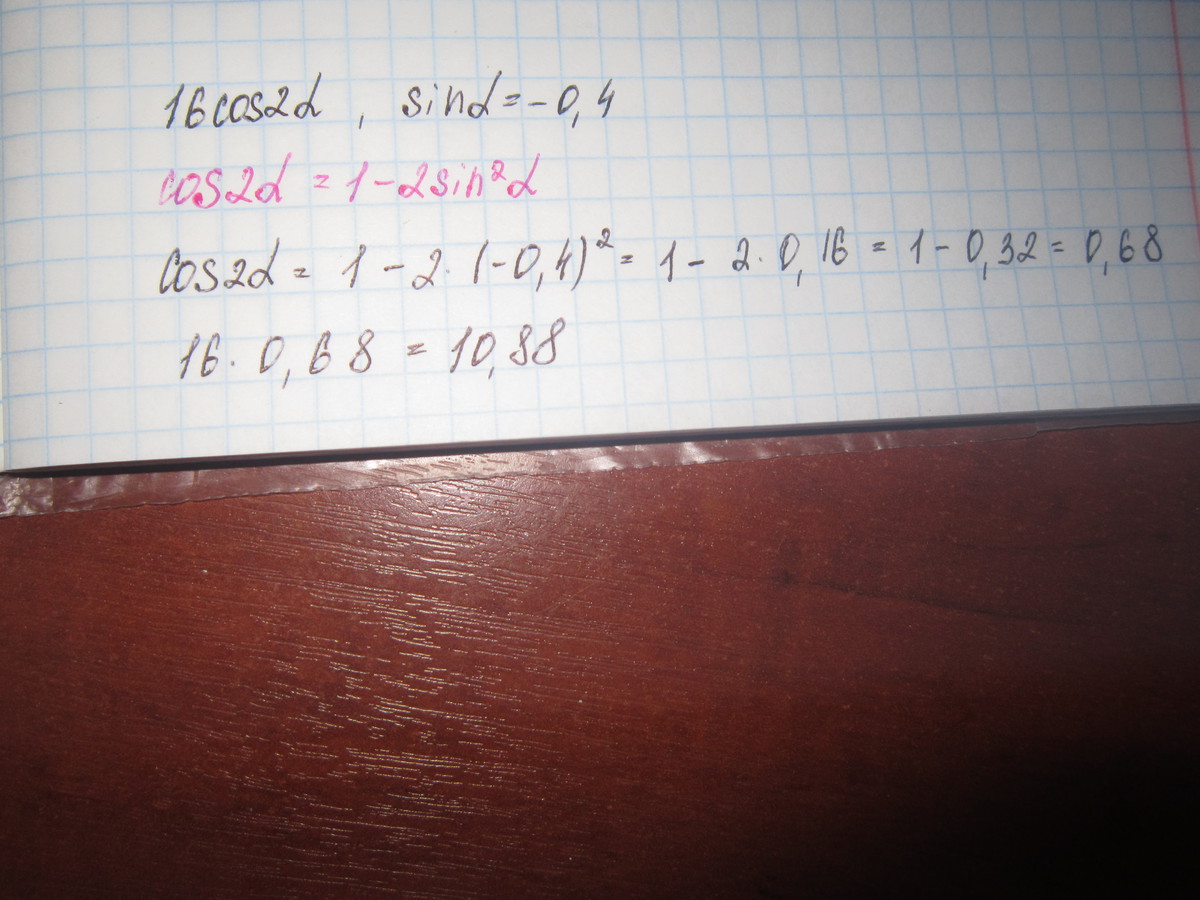 16cos2α , sinα = -0,4
cos2α = 1 - 2sin²α
cos2α = 1 - 2 · (-0,4)² = 1 - 2 · 0,16 = 1 - 0,32 = 0,68
16 · 0,68 = 10,88